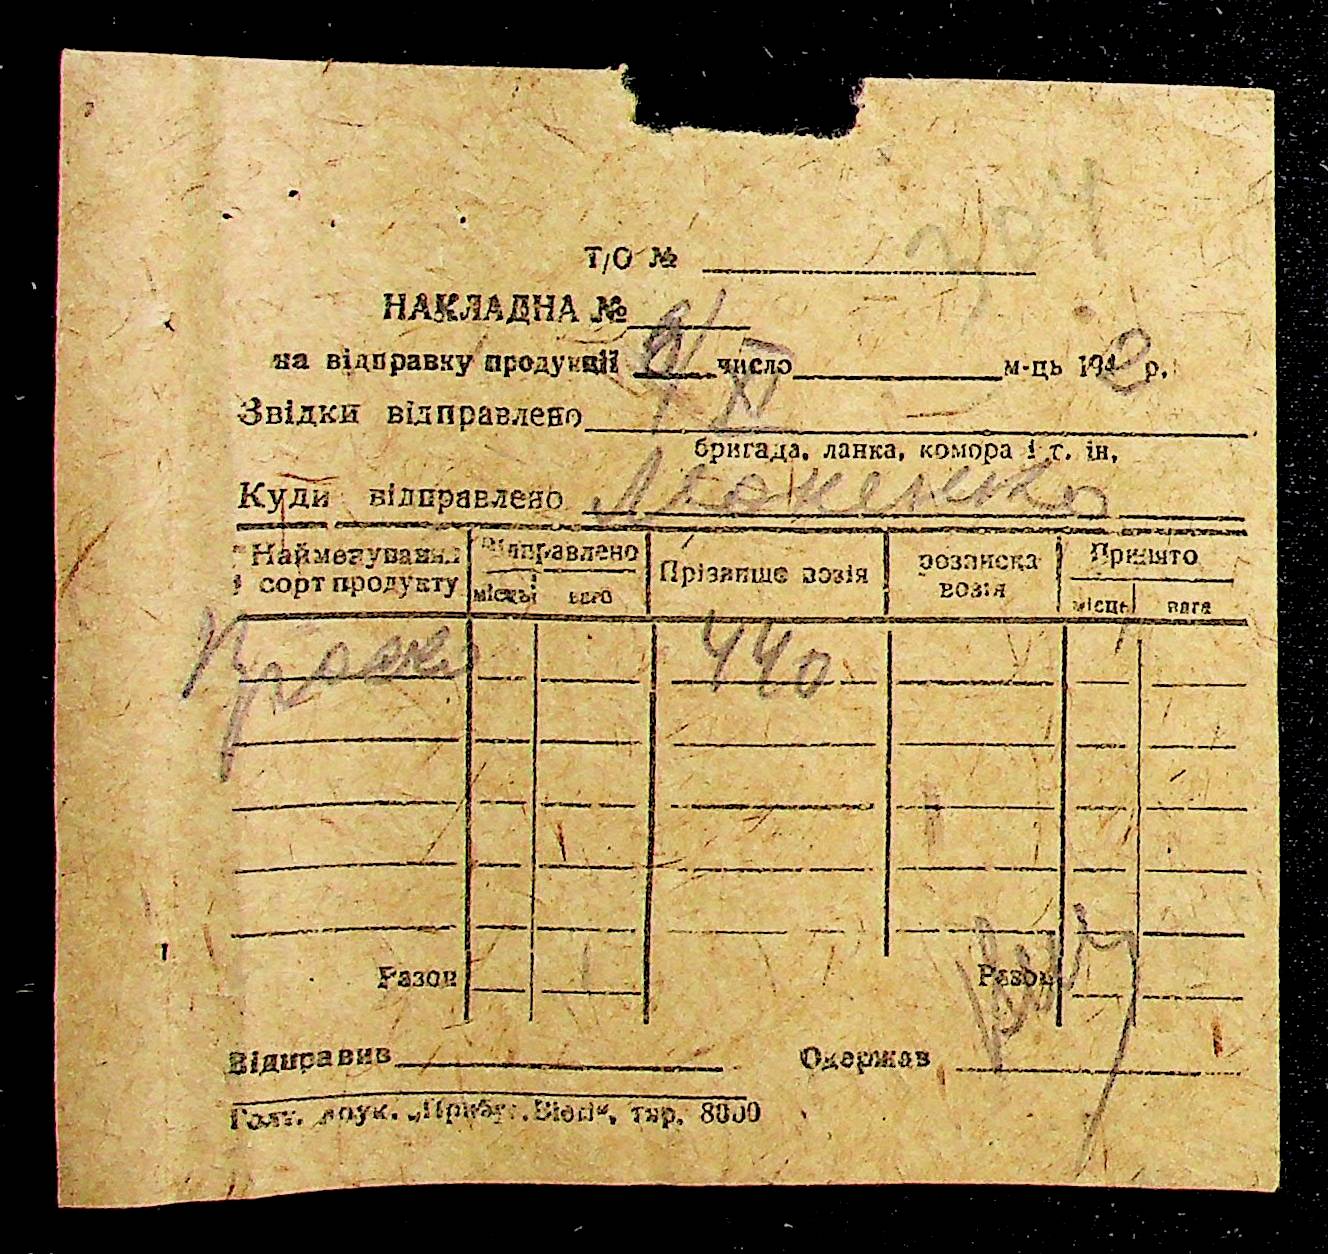 304
Т/О №
НАКЛАДНА №
на відправку продукції 9/XI число м-ць 1942 р.
Звідки відправлено
бригада, ланка, комора і т. ін,
Куди відправлено
Найменування і сорт продукту Відправлено місць вага Прізвище возія розписка возія Принято місць вага
Просо 440
Разом Разом
Відправив Одержав
Голт. друк. „Прибуг. Вісті“, тир. 8000